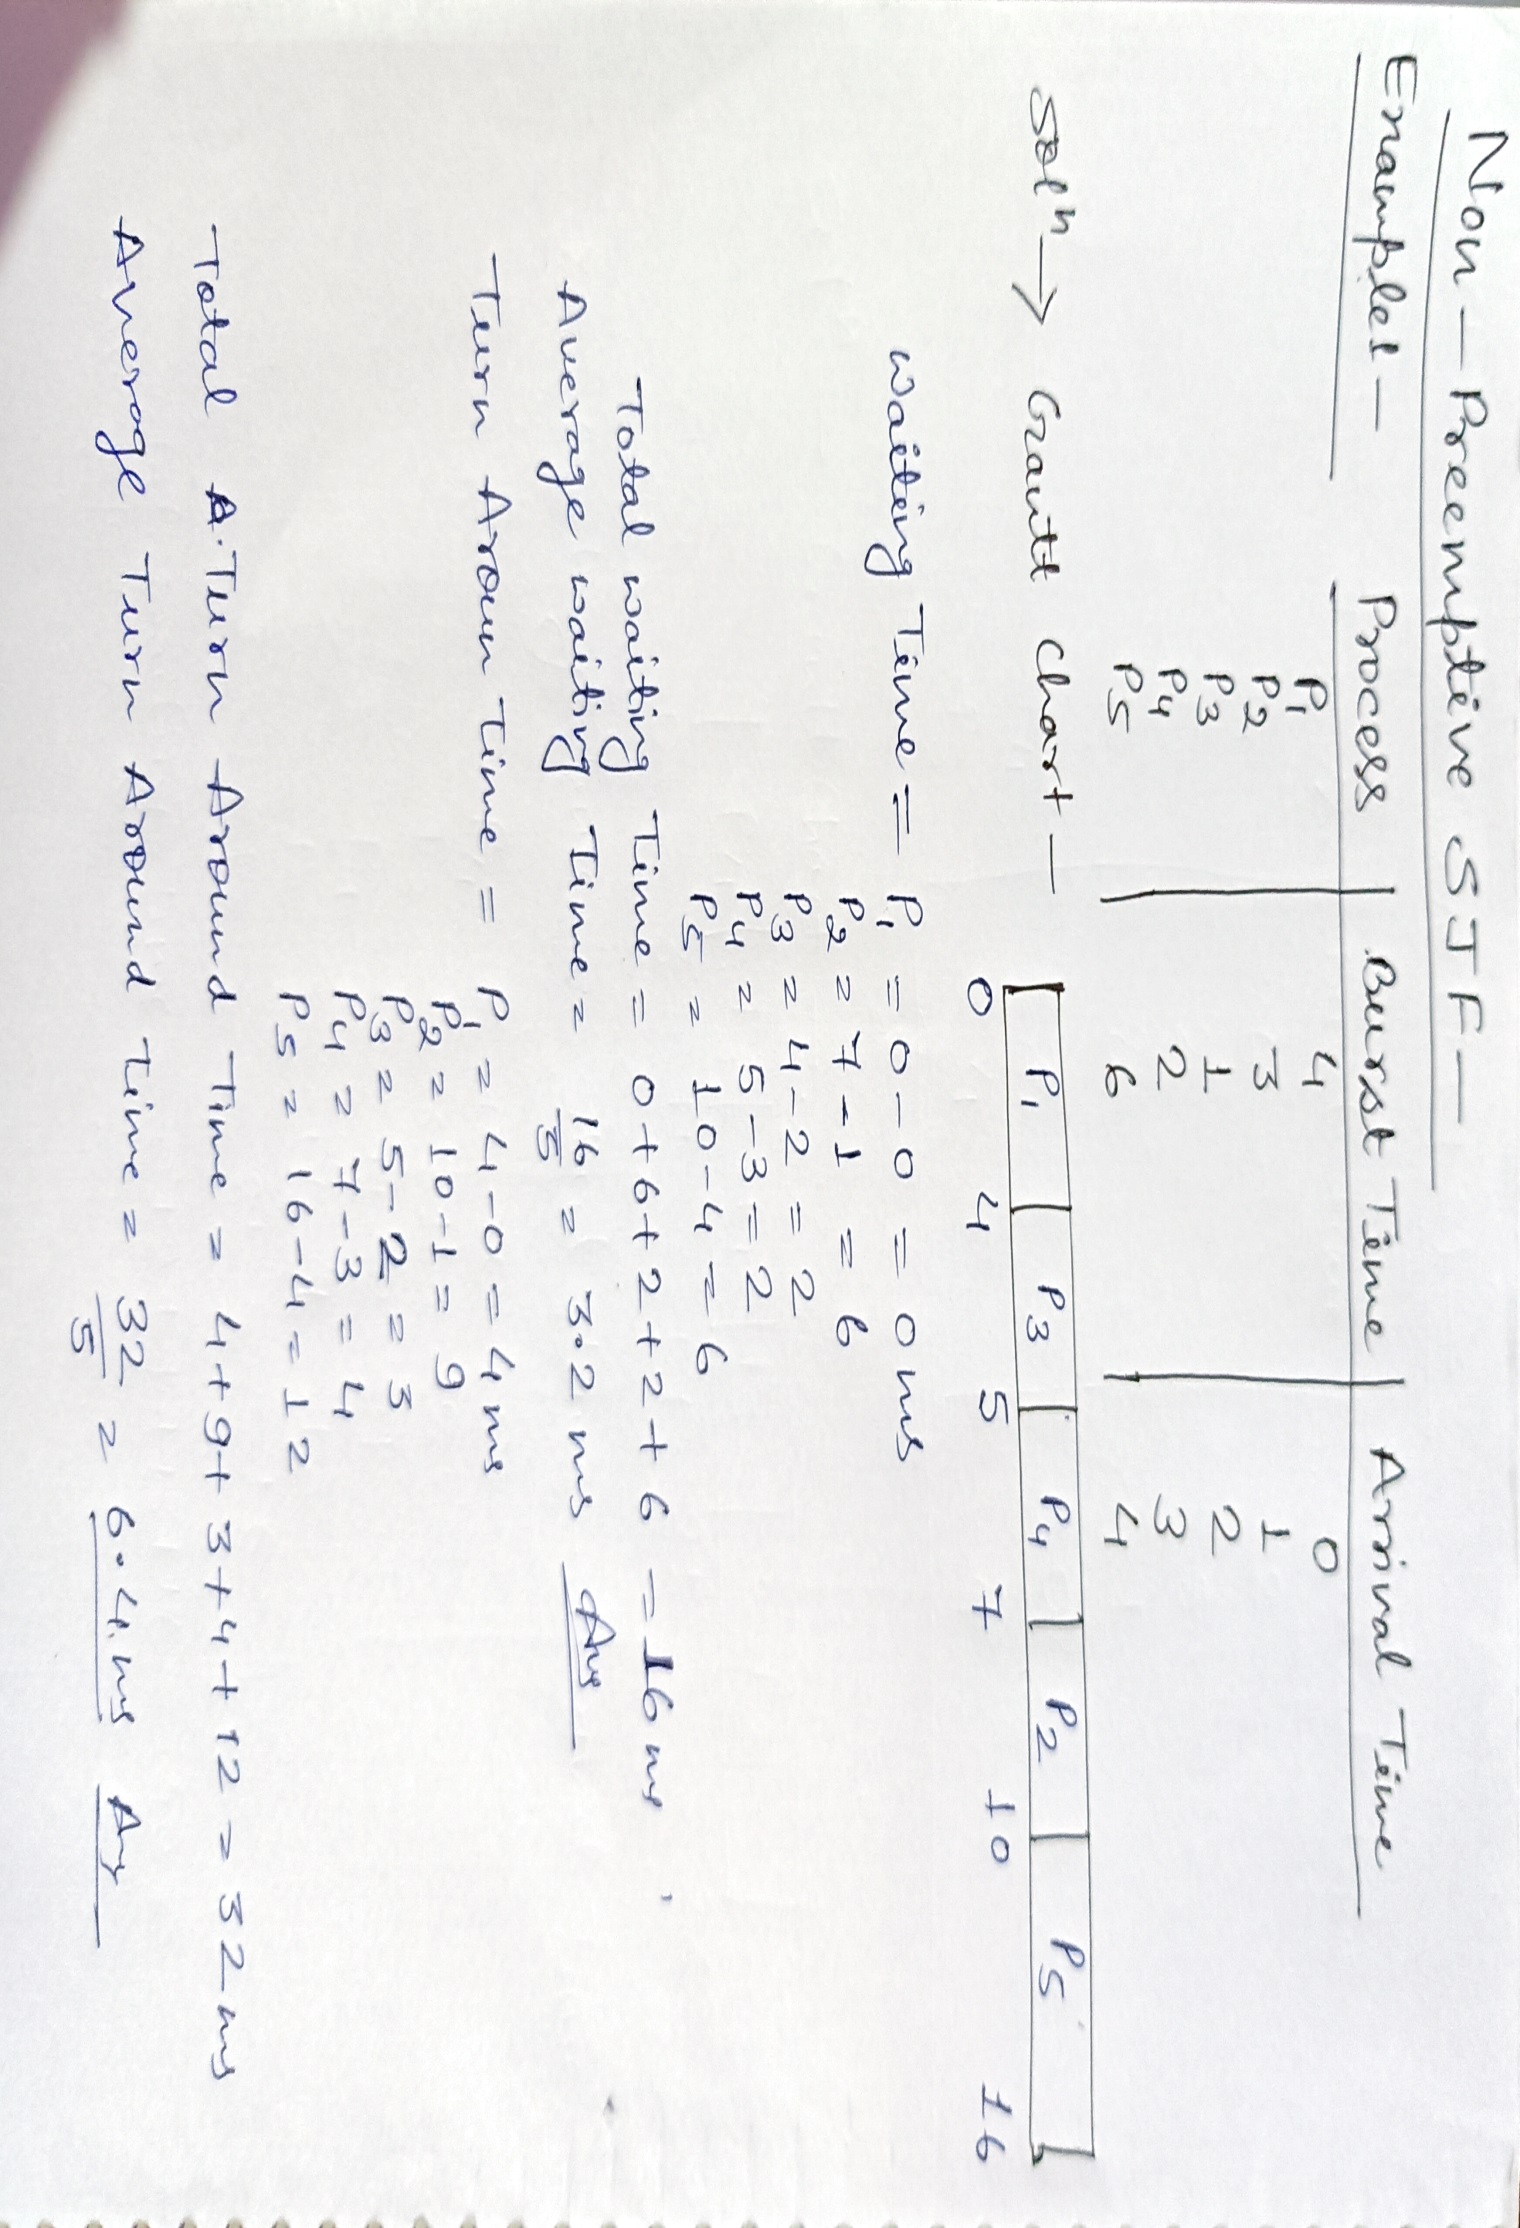 Non - Preemptive SJF -
Example 1 -
Process | Burst Time | Arrival Time
P1 4 0
P2 3 1
P3 1 2
P4 2 3
P5 6 4
Solⁿ → Grantt Chart -
P1 P3 P4 P2 P5
0 4 5 7 10 16
Waiting Time = P1 = 0 - 0 = 0 ms
P2 = 7 - 1 = 6
P3 = 4 - 2 = 2
P4 = 5 - 3 = 2
P5 = 10 - 4 = 6
Total waiting Time = 0 + 6 + 2 + 2 + 6 = 16 ms
Average waiting Time = 16/5 = 3.2 ms Ans
Turn Aroun Time = P1 = 4 - 0 = 4 ms
P2 = 10 - 1 = 9
P3 = 5 - 2 = 3
P4 = 7 - 3 = 4
P5 = 16 - 4 = 12
Total A. Turn Around Time = 4 + 9 + 3 + 4 + 12 = 32 ms
Average Turn Around Time = 32/5 = 6.4 ms Ans